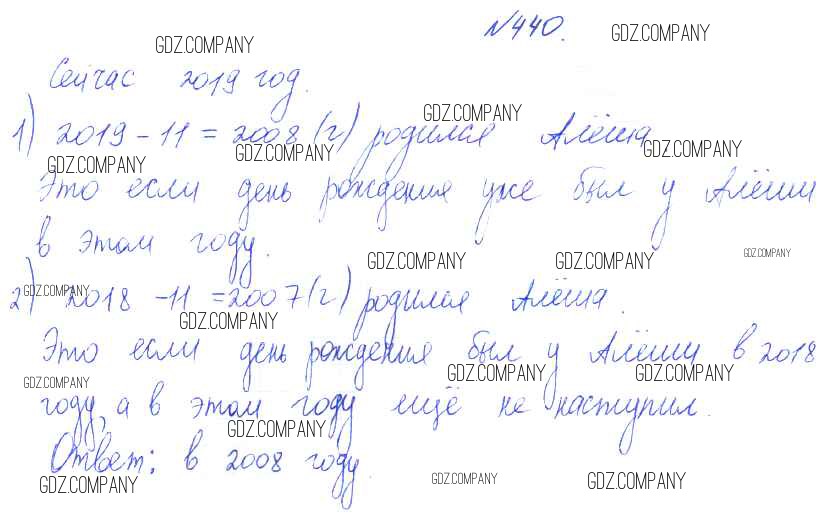 №440.
GDZ.COMPANY GDZ.COMPANY
Сейчас 2019 год.
GDZ.COMPANY
1) 2019 - 11 = 2008 (г) родился Алёша
GDZ.COMPANY GDZ.COMPANY GDZ.COMPANY
Это если день рождения уже был у Алёши
в этом году.
GDZ.COMPANY GDZ.COMPANY GDZ.COMPANY
2) 2018 - 11 = 2007 (г) родился Алёша.
GDZ.COMPANY
GDZ.COMPANY
Это если день рождения был у Алёши в 2018
GDZ.COMPANY GDZ.COMPANY GDZ.COMPANY
году, а в этом году ещё не наступил.
GDZ.COMPANY
Ответ: в 2008 году.
GDZ.COMPANY GDZ.COMPANY GDZ.COMPANY